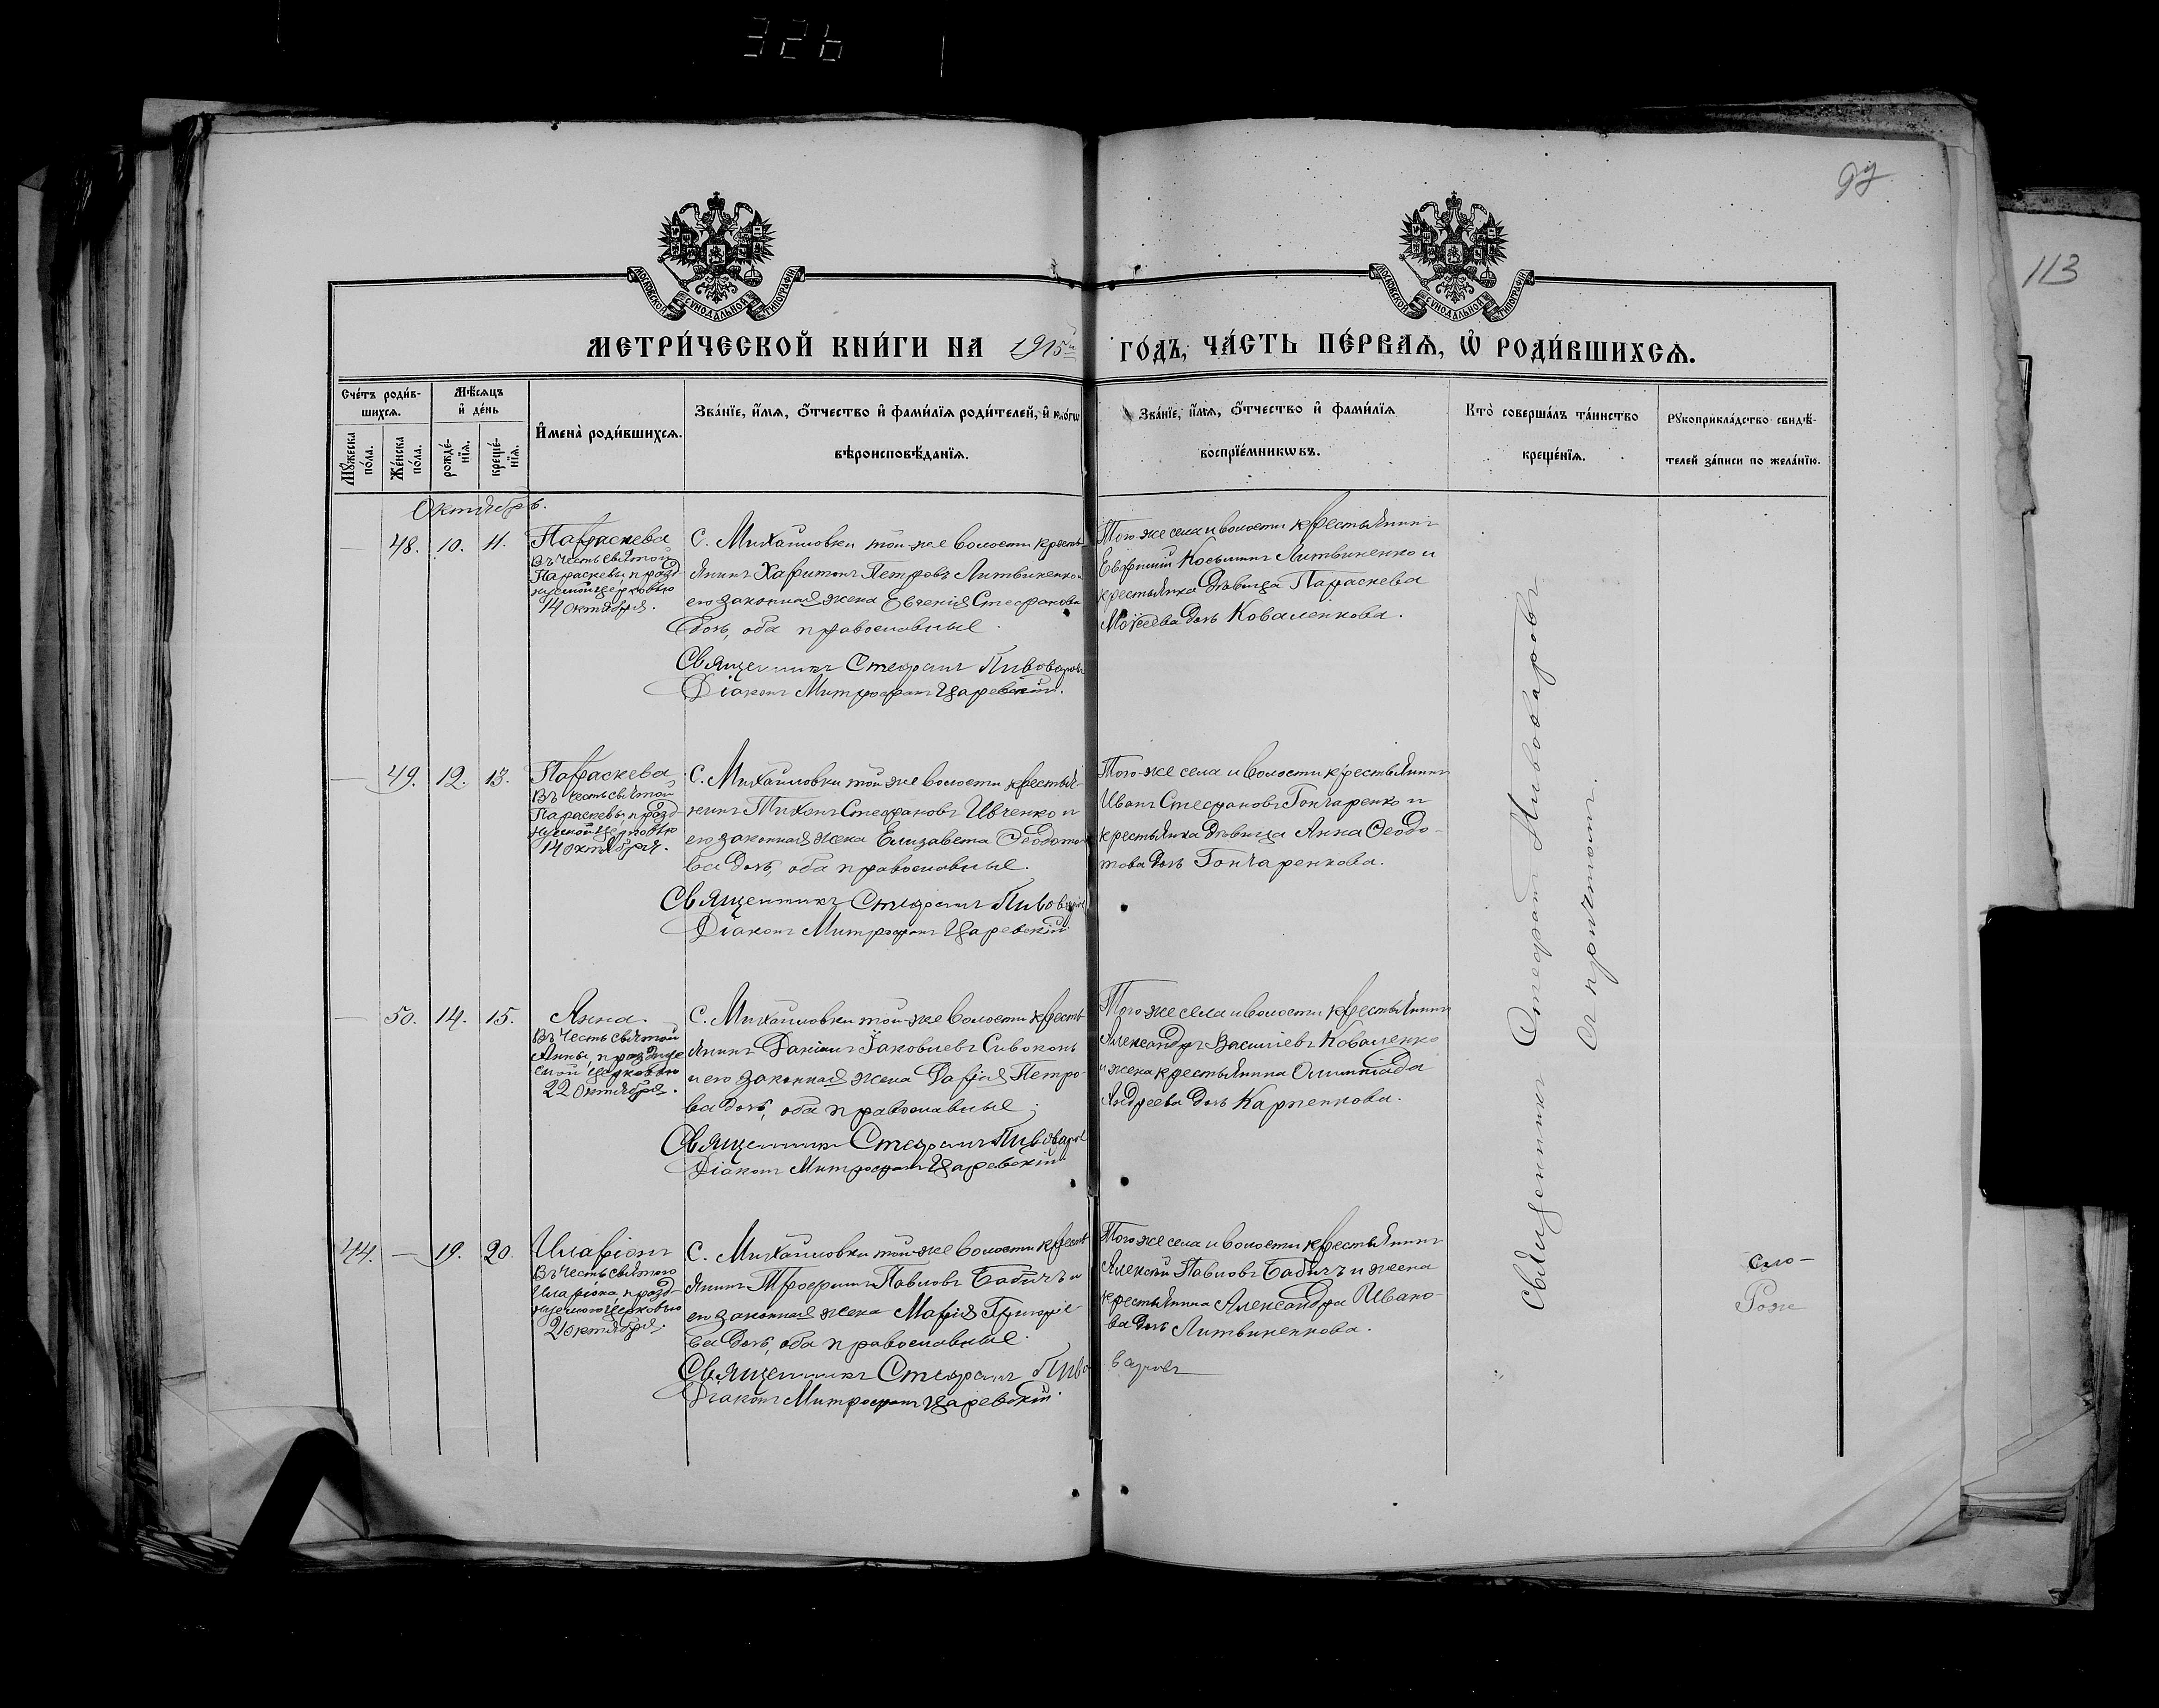 326
97
113
МОСКОВСКОЙ СѴНОДАЛЬНОЙ ТИПОГРАФІИ
МОСКОВСКОЙ СѴНОДАЛЬНОЙ ТИПОГРАФІИ
МЕТРИ́ЧЕСКОЙ КНИ́ГИ НА 1915й ГО́ДЪ, ЧА́СТЬ ПЕ́РВАѦ, Ѡ҆ РОДИ́ВШИХСѦ.
Сче́тъ роди́в-
шихсѧ.
Мꙋ́жеска
по́ла.
Же́нска
по́ла.
Мѣ́сѧцъ
и҆ де́нь
рожде́-
нїѧ.
креще́-
нїѧ.
И҆мена̀ роди́вшихсѧ.
Зва́нїе, и҆́мѧ, ѻ҆́тчество и҆ фами́лїѧ роди́телей, и҆ како́гѡ
вѣроисповѣ́данїѧ.
Зва́нїе, и҆́мѧ, ѻ҆́тчество и҆ фами́лїѧ
воспрїе́мникѡвъ.
Кто̀ соверша́лъ та́инство
креще́нїѧ.
Рꙋкоприкла́дство свидѣ́-
телей за́писи по жела́нїю.
Октябрь.
— 48. 10. 11.
Параскева
Въ честь святой
Параскевы, празд-
нуемой церковью
14 октября.
С. Михайловки той-же волости кресть-
янинъ Харитонъ Петровъ Литвиненко и
его законная жена Евгенія Стефанова
дочь, оба православные.
Священникъ Стефанъ Пивоваровъ
Діаконъ Митрофанъ Царевскій.
Того-же села и волости крестьянинъ
Евфимій Косьминъ Литвиненко и
крестьянка девица Параскева
Моисеева дочь Коваленкова.
— 49. 12. 13.
Параскева
Въ честь святой
Параскевы, празд-
нуемой церковью
14 октября.
С. Михайловки той же волости крестья-
нинъ Тихонъ Стефановъ Ивченко и
его законная жена Елизавета Феодото-
ва дочь, оба православные.
Священникъ Стефанъ Пивоваровъ
Діаконъ Митрофанъ Царевскій
Того-же села и волости крестьянинъ
Иванъ Стефановъ Гончаренко и
крестьянка девица Анна Феодо-
това дочь Гончаренкова.
— 50. 14. 15.
Анна.
Въ честь святой
Анны, празднуе-
мой церковью
22 октября.
С. Михайловки той-же волости кресть-
янинъ Даніилъ Іаковлевъ Сивоконь
и его законная жена Дарія Петро-
ва дочь, оба православные;
Священникъ Стефанъ Пивоваровъ
Діаконъ Митрофанъ Царевскій
Того-же села и волости крестьянинъ
Александръ Василіевъ Коваленко
и жена крестьянина Олимпіада
Андреева дочь Карпенкова.
44. — 19. 20.
Иларіонъ
Въ честь святого
Иларіона, празд-
нуемого церковью
21 октября.
С. Михайловки той-же волости кресть-
янинъ Трофимъ Павловъ Бабичъ и
его законная жена Марія Григоріе-
ва дочь, оба православные.
Священникъ Стефанъ Пивоваровъ
Діаконъ Митрофанъ Царевскій.
Того же села и волости крестьянинъ
Алексій Павловъ Бабичъ и жена
крестьянина Александра Ивано-
ва дочь Литвиненкова.
Священникъ Стефанъ Пивоваровъ
съ причтомъ.